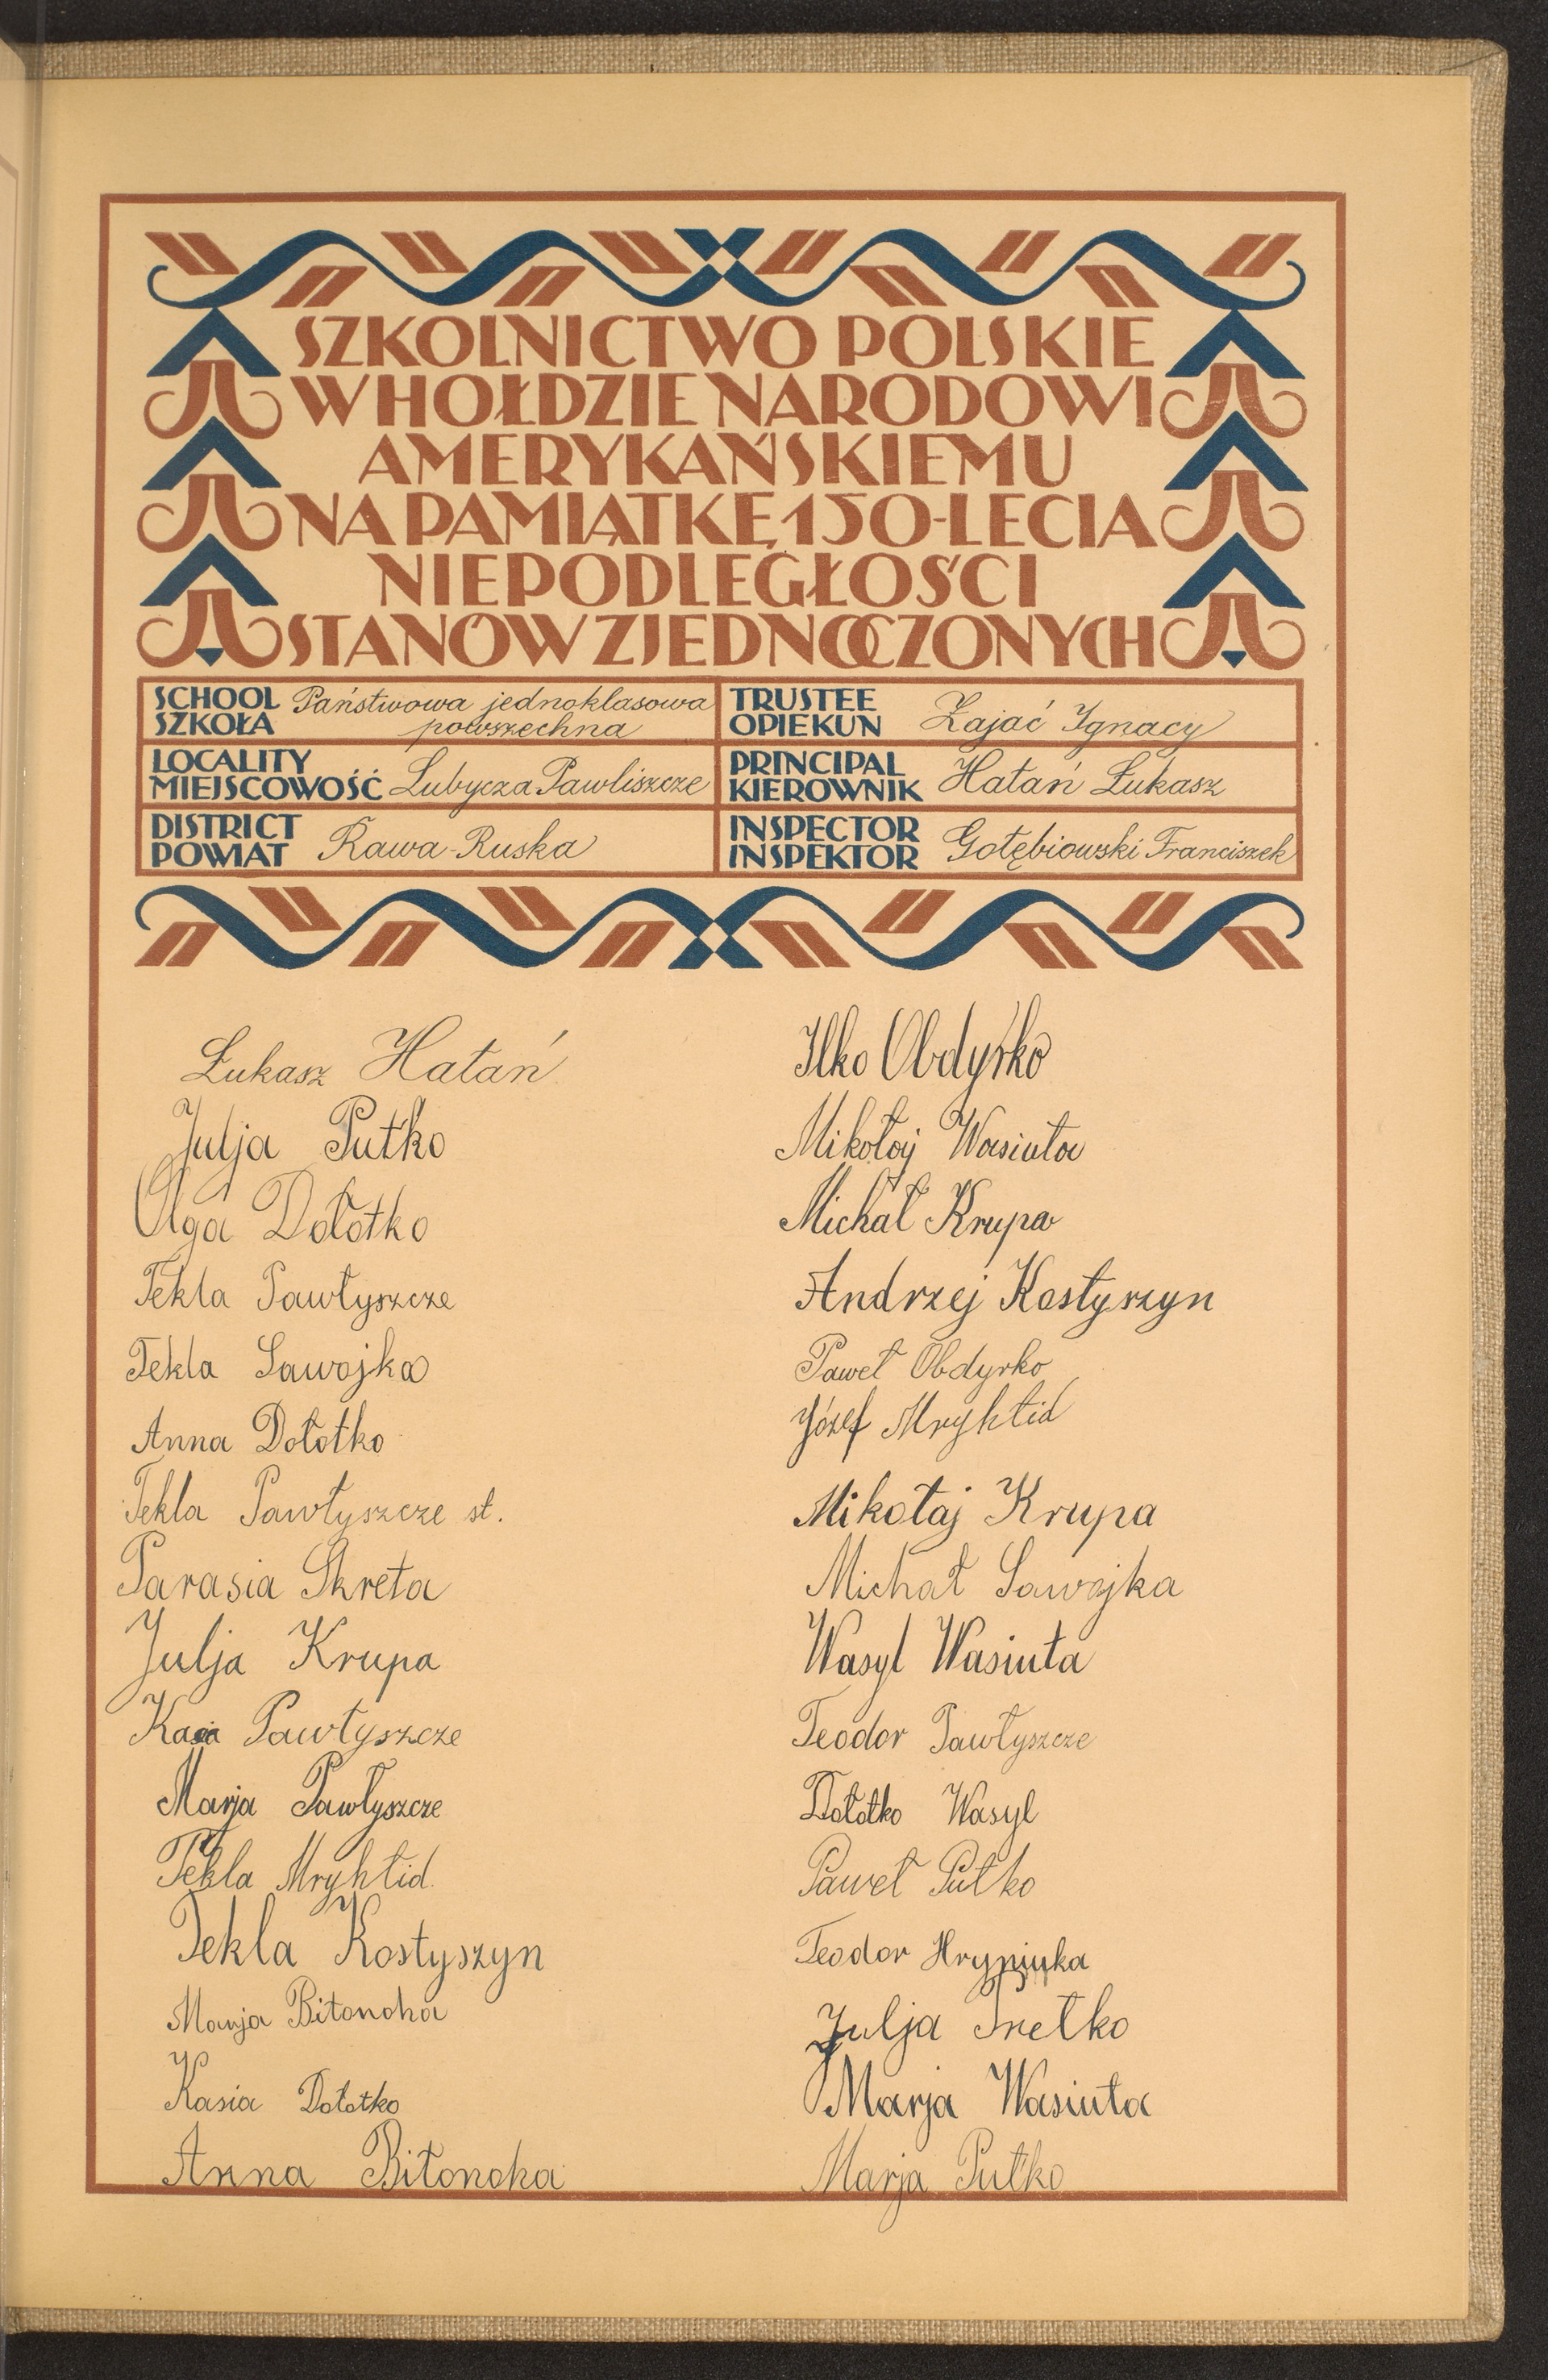 SZKOLNICTWO POLSKIE
W HOŁDZIE NARODOWI
AMERYKAŃSKIEMU
NA PAMIĄTKĘ 150-LECIA
NIEPODLEGŁOŚCI
STANÓW ZJEDNOCZONYCH
SCHOOL
SZKOŁA
Państwowa jednoklasowa
powszechna
TRUSTEE
OPIEKUN
Zajać Ignacy
LOCALITY
MIEJSCOWOŚĆ
Lubycza Pawliszcze
PRINCIPAL
KIEROWNIK
Hałań Łukasz
DISTRICT
POWIAT
Rawa-Ruska
INSPECTOR
INSPEKTOR
Gołębiowski Franciszek
Łukasz Hałań
Julja Put'ko
Olga Dołotko
Tekla Pawłyszcze
Tekla Sawojka
Anna Dołotko
Tekla Pawłyszcze st.
Parasia Skreta
Julja Krupa
Kasia Pawłyszcze
Marja Pawłyszcze
Tekla Mryhłid
Tekla Kostyszyn
Marja Biłonoha
Kasia Dołotko
Anna Biłonoha
Ilko Obdyrko
Mikołoj Wasiuta
Michał Krupa
Andrzej Kostyszyn
Paweł Obdyrko
Józef Mryhłid
Mikołaj Krupa
Michał Sawojka
Wasyl Wasiuta
Teodor Pawłyszcze
Dołotko Wasyl
Paweł Putko
Teodor Hryniuka
Julja
Marja Wasiuta
Marja Put'ko